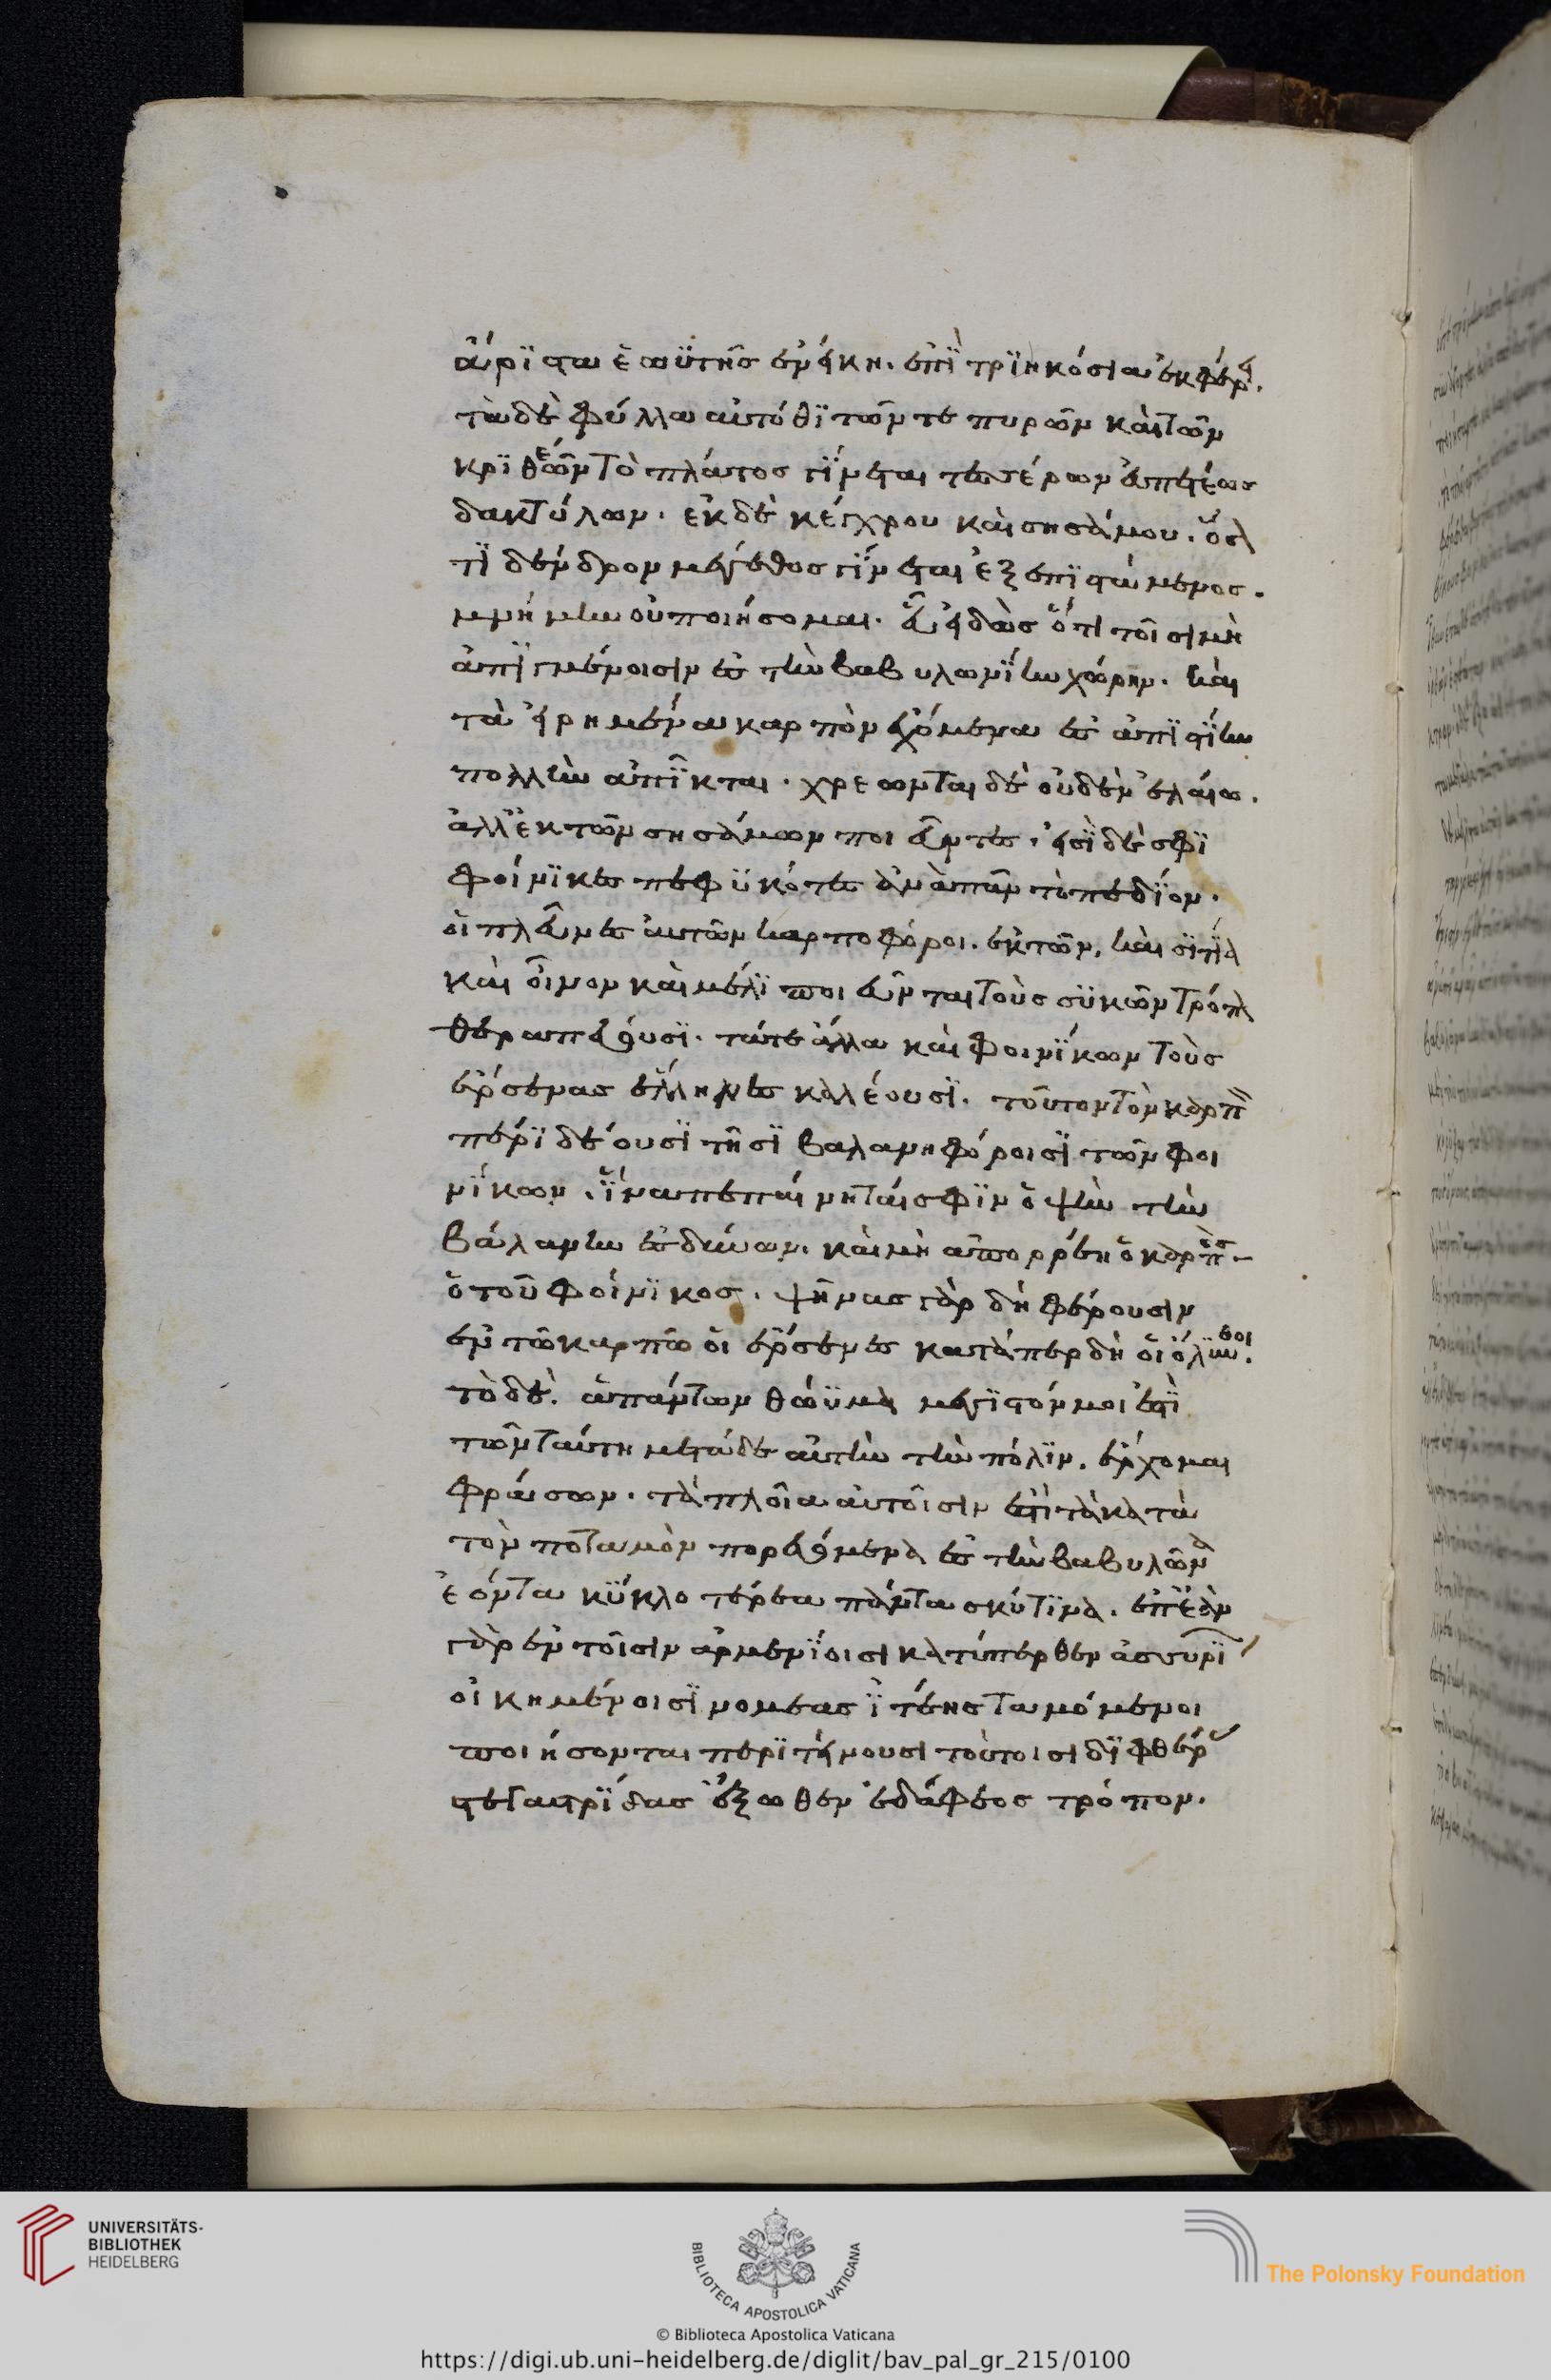 ἄριστα ἑωυτῆς ἐνείκη. ἐπὶ τριηκόσια ἐκφέρει.
τὰ δὲ φύλλα αὐτόθι τῶν τε πυρῶν καὶ τῶν
κριθέων τὸ πλάτος γίνεται τεσσέρων εὐπετέως
δακτύλων. ἐκ δὲ κέγχρου καὶ σησάμου. ὅσο
τι δένδρον μέγεθος γίνεται ἐξεπιστάμενος.
μνήμην οὐ ποιήσομαι. εὖ εἰδὼς ὅτι τοῖσι μὴ
ἀπιγμένοισιν ἐς τὴν βαβυλωνίην χώρην. καὶ
τὰ εἰρημένα καρπὸν ἐχόμενα ἐς ἀπιστίην
πολλὴν ἀπῖκται. χρέωνται δὲ οὐδὲν ἐλαίω.
ἀλλ' ἐκ τῶν σησάμων ποιεῦντες. εἰσὶ δὲ σφι
φοίνικες πεφυκότες ἀνὰ πᾶν τὸ πεδίον.
οἱ πλεῦνες αὐτῶν καρποφόροι. ἐκ τῶν, καὶ σιτία
καὶ οἶνον καὶ μέλι ποιεῦνται τοὺς συκῶν τρόπο
θεραπεύουσι. τά τε ἄλλα καὶ φοινίκων τοὺς
ἔρσενας ἕλληνες καλέουσι. τοῦτον τὸν καρπὸν
περιδέουσι τῆσι βαλανηφόροισι τῶν φοι
νίκων. ἵνα πεπαίνηταί σφιν ὁ ψὴν τὴν
βάλανην ἐσδύνων. καὶ μὴ ἀπορρέη ὁ καρπὸς
ὁ τοῦ φοίνικος. ψῆνας γὰρ δὴ φέρουσιν
ἐν τῶ καρπῶ οἱ ἔρσενες κατάπερ δὴ οἱ ὄλυνθοι.
τὸ δὲ. ἁπάντων θώυμα μέγιστόν μοι ἐστὶ
τῶν ταύτη μετά δε αὐτὴν τὴν πόλιν. ἔρχομαι
φράσων. τὰ πλοῖα αὐτοῖσιν ἐστὶ τὰ κατὰ
τὸν ποταμὸν πορευόμενα ἐς τὴν βαβυλῶνα
ἐόντα κυκλοτερέα πάντα σκύτινα. ἐπεὰν
γὰρ ἐν τοῖσιν ἀρμενίοισι κατύπερθεν ἀσσυρί
οἰκημένοισι νομέας ἰτέης ταμόμενοι
ποιήσονται περιτείνουσι τούτοισι διφθέρ
στεγαστρίδας ἔξωθεν ἐδάφεος τρόπον.
UNIVERSITÄTS-
BIBLIOTHEK
HEIDELBERG
BIBLIOTECA APOSTOLICA VATICANA
The Polonsky Foundation
© Biblioteca Apostolica Vaticana
https://digi.ub.uni-heidelberg.de/diglit/bav_pal_gr_215/0100